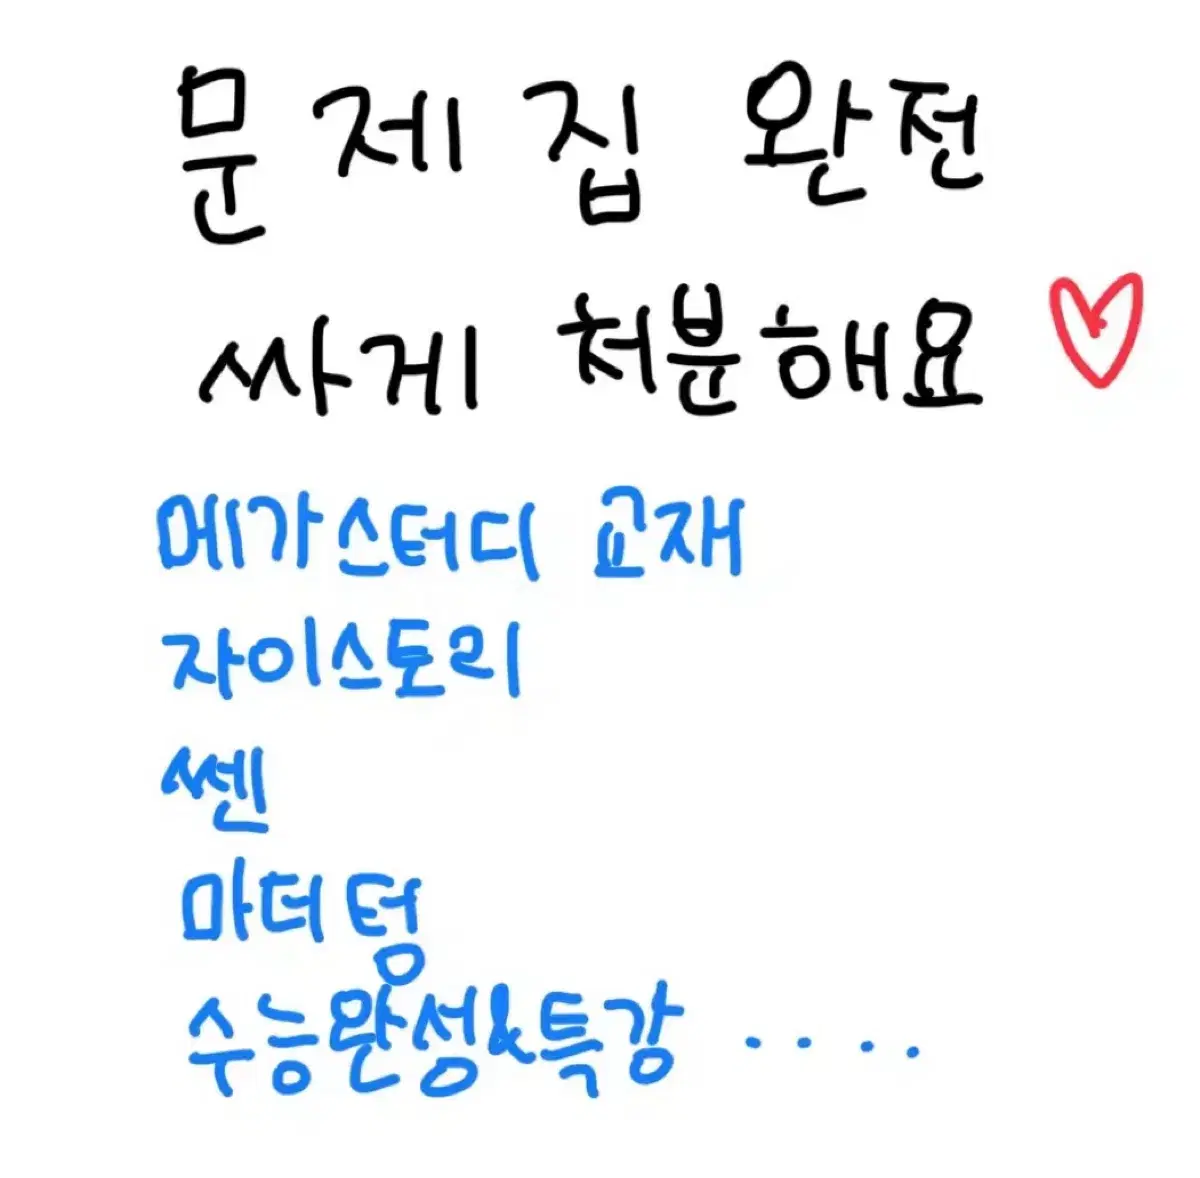 문제집 완전
싸게 처분해요
메가스터디 교재
자이스토리
쎈
마더텅
수능완성&특강 ....